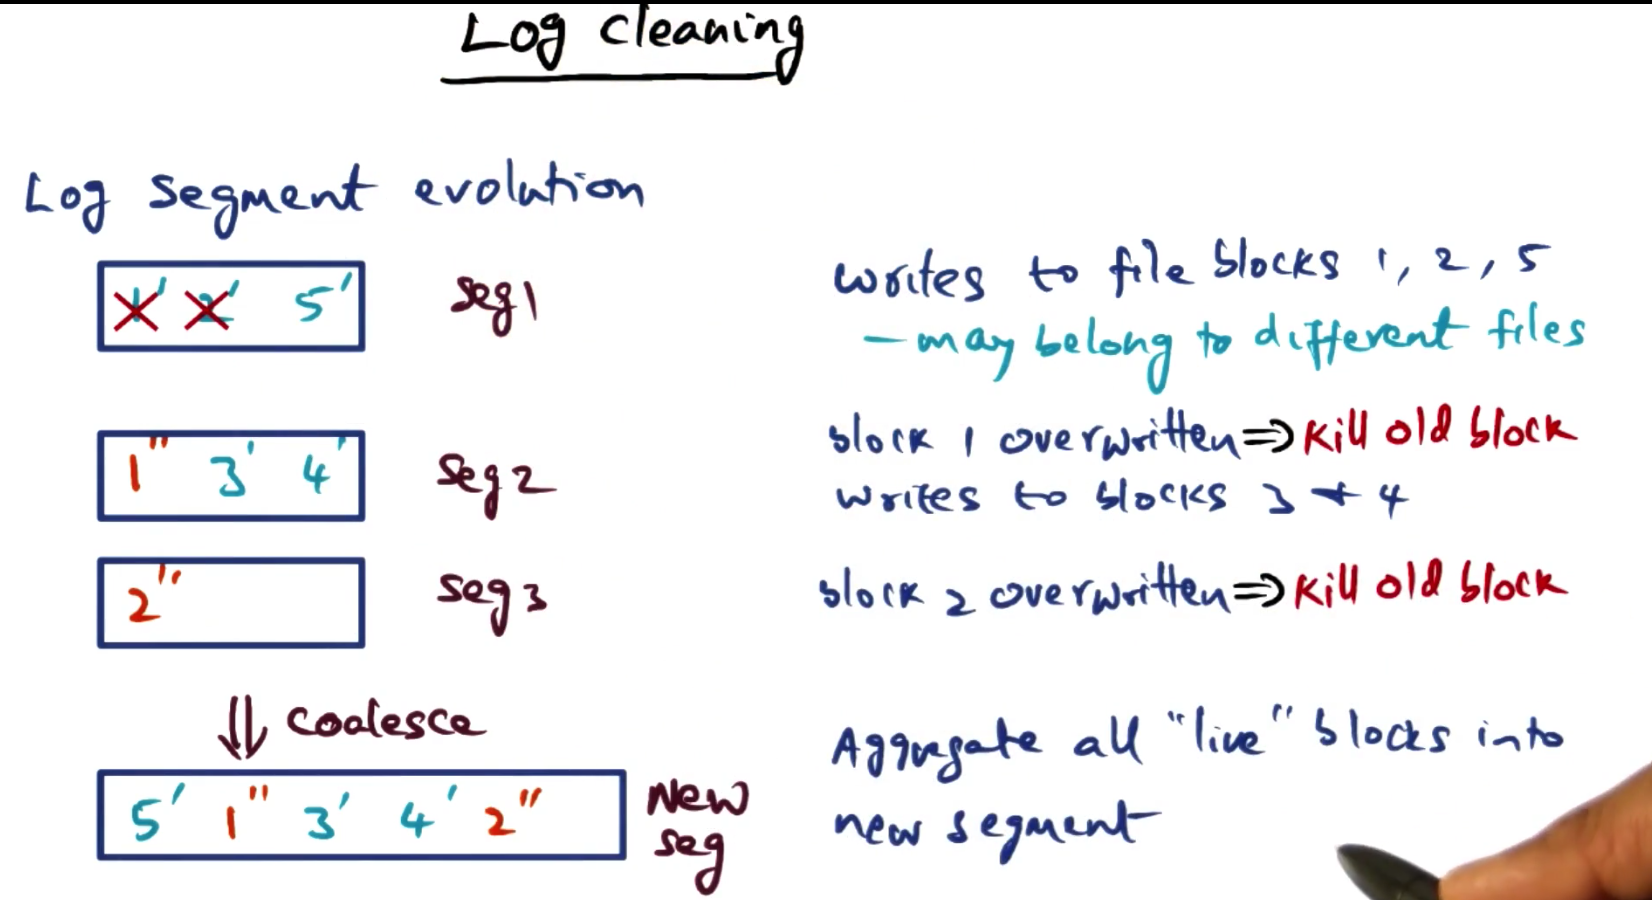 Log cleaning
Log segment evolution
1' 2' 5' seg1 writes to file blocks 1, 2, 5
– may belong to different files
1" 3' 4' seg2 block 1 overwritten ⇒ kill old block
writes to blocks 3 + 4
2" seg3 block 2 overwritten ⇒ kill old block
⇓ coalesce Aggregate all "live" blocks into
5' 1" 3' 4' 2" New seg new segment